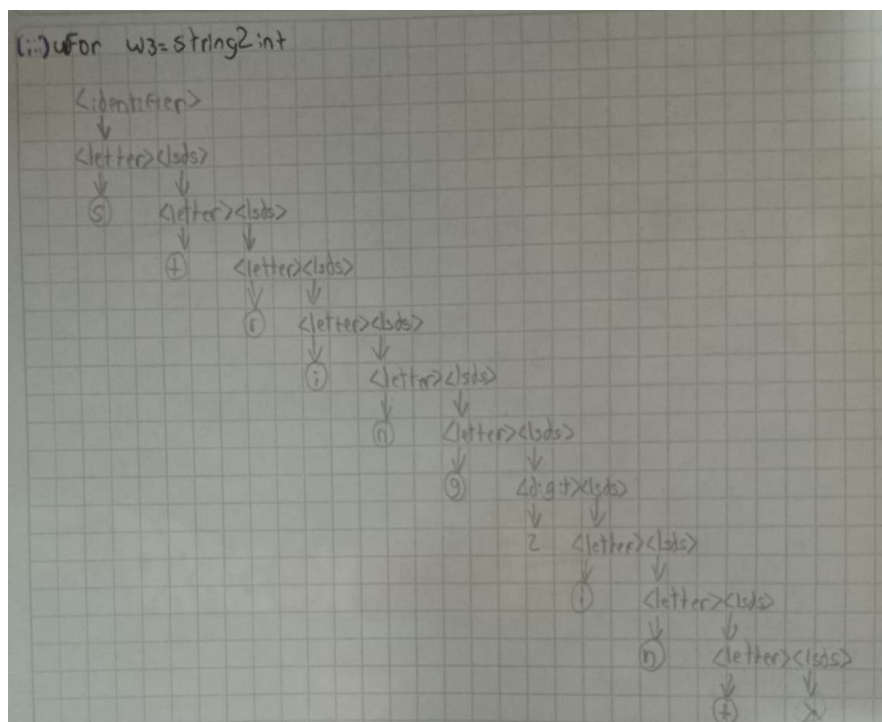 (iii) For w3=string2int
<identifier>
<letter><lsds>
s <letter><lsds>
t <letter><lsds>
r <letter><lsds>
i <letter><lsds>
n <letter><lsds>
g <digit><lsds>
2 <letter><lsds>
i <letter><lsds>
n <letter><lsds>
t λ